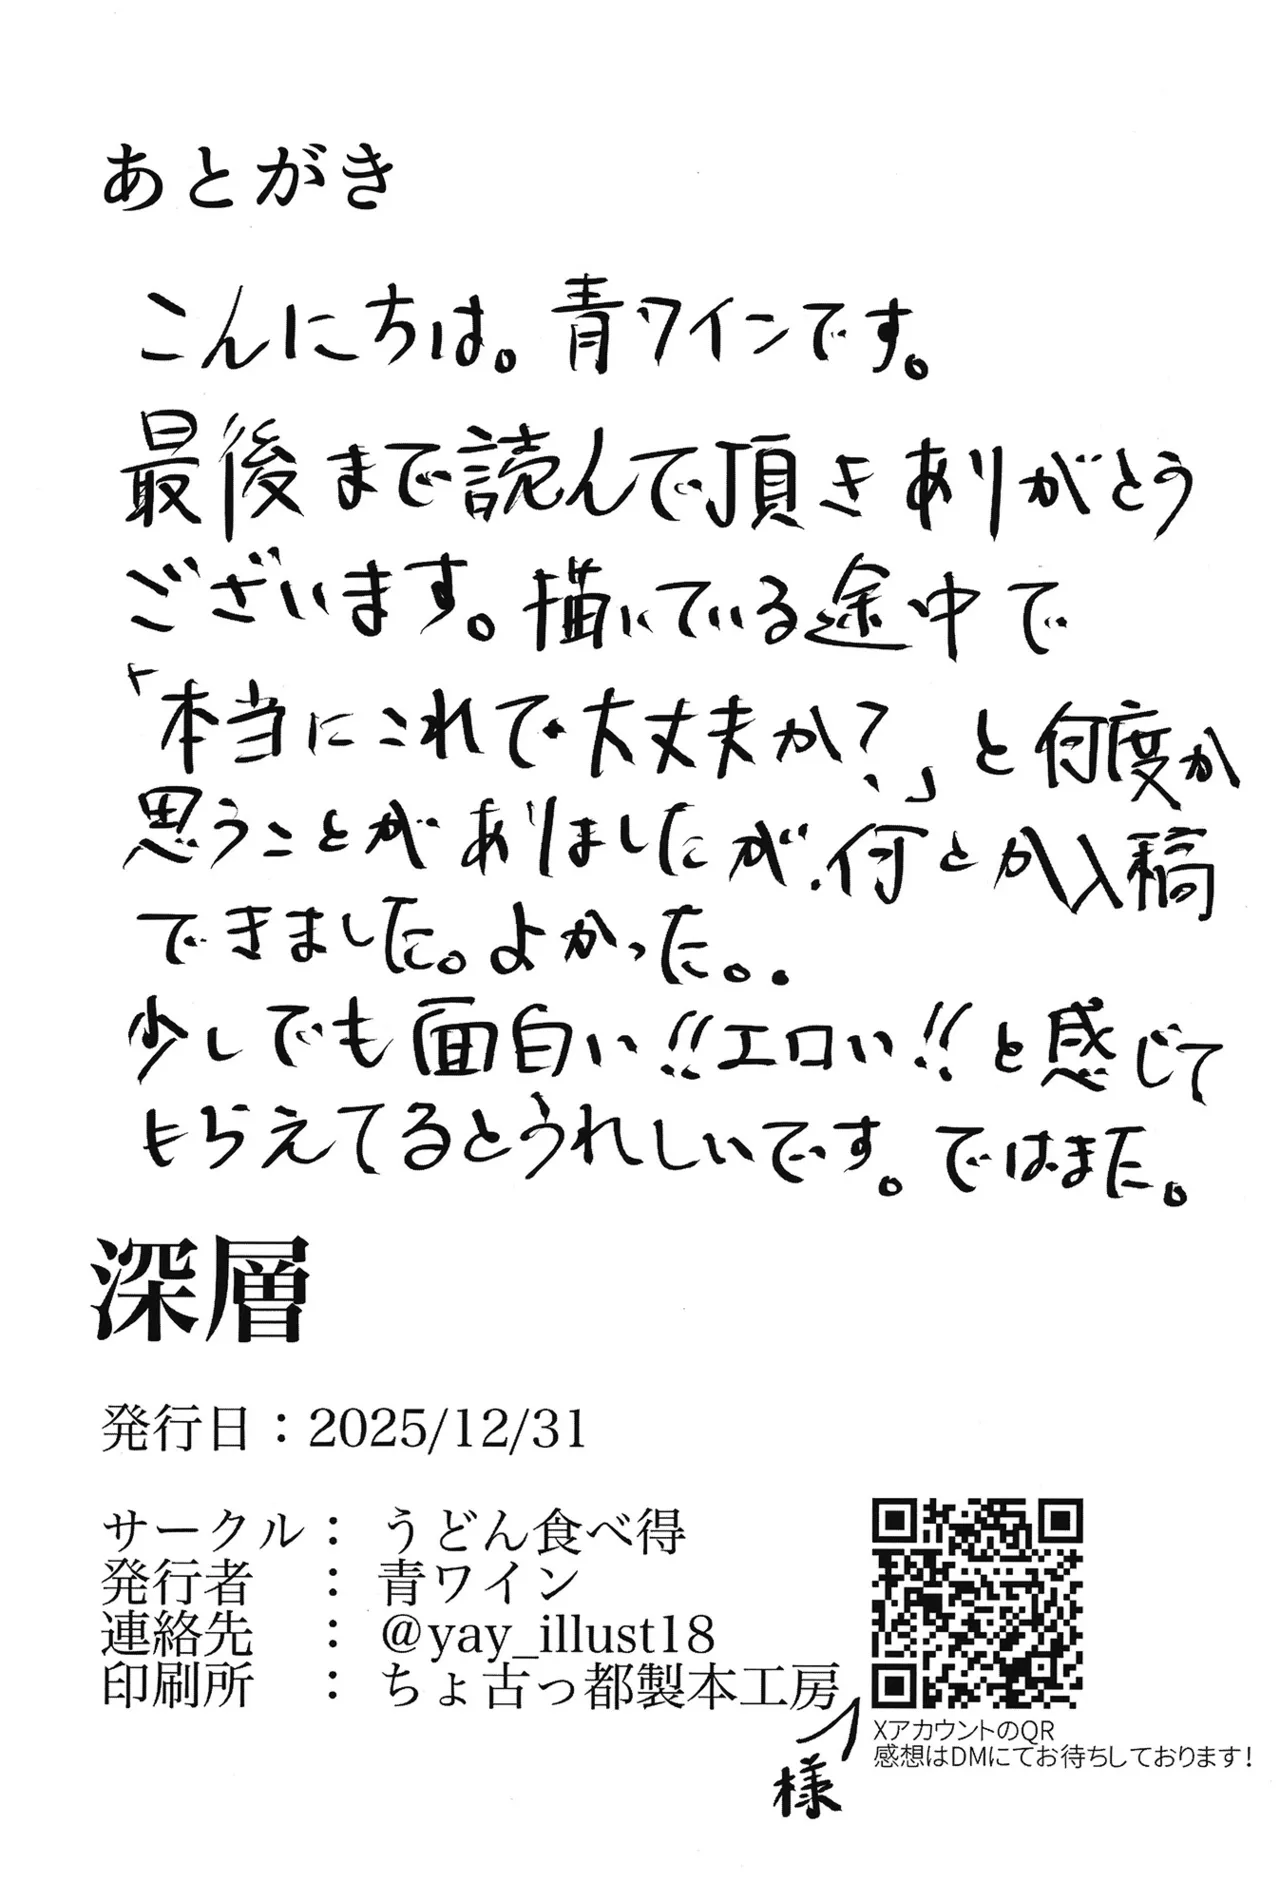 あとがき
こんにちは。青ワインです。
最後まで読んで頂きありがとう
ございます。描いている途中で
「本当にこれで大丈夫か？」と何度か
思うことがありましたが、何とか入稿
できました。よかった。.
少しでも面白い!!エロい!!と感じて
もらえてるとうれしいです。ではまた。
深層
発行日：2025/12/31
サークル：うどん食べ得
発行者：青ワイン
連絡先：@yay_illust18
印刷所：ちょ古っ都製本工房
様
XアカウントのQR
感想はDMにてお待ちしております!